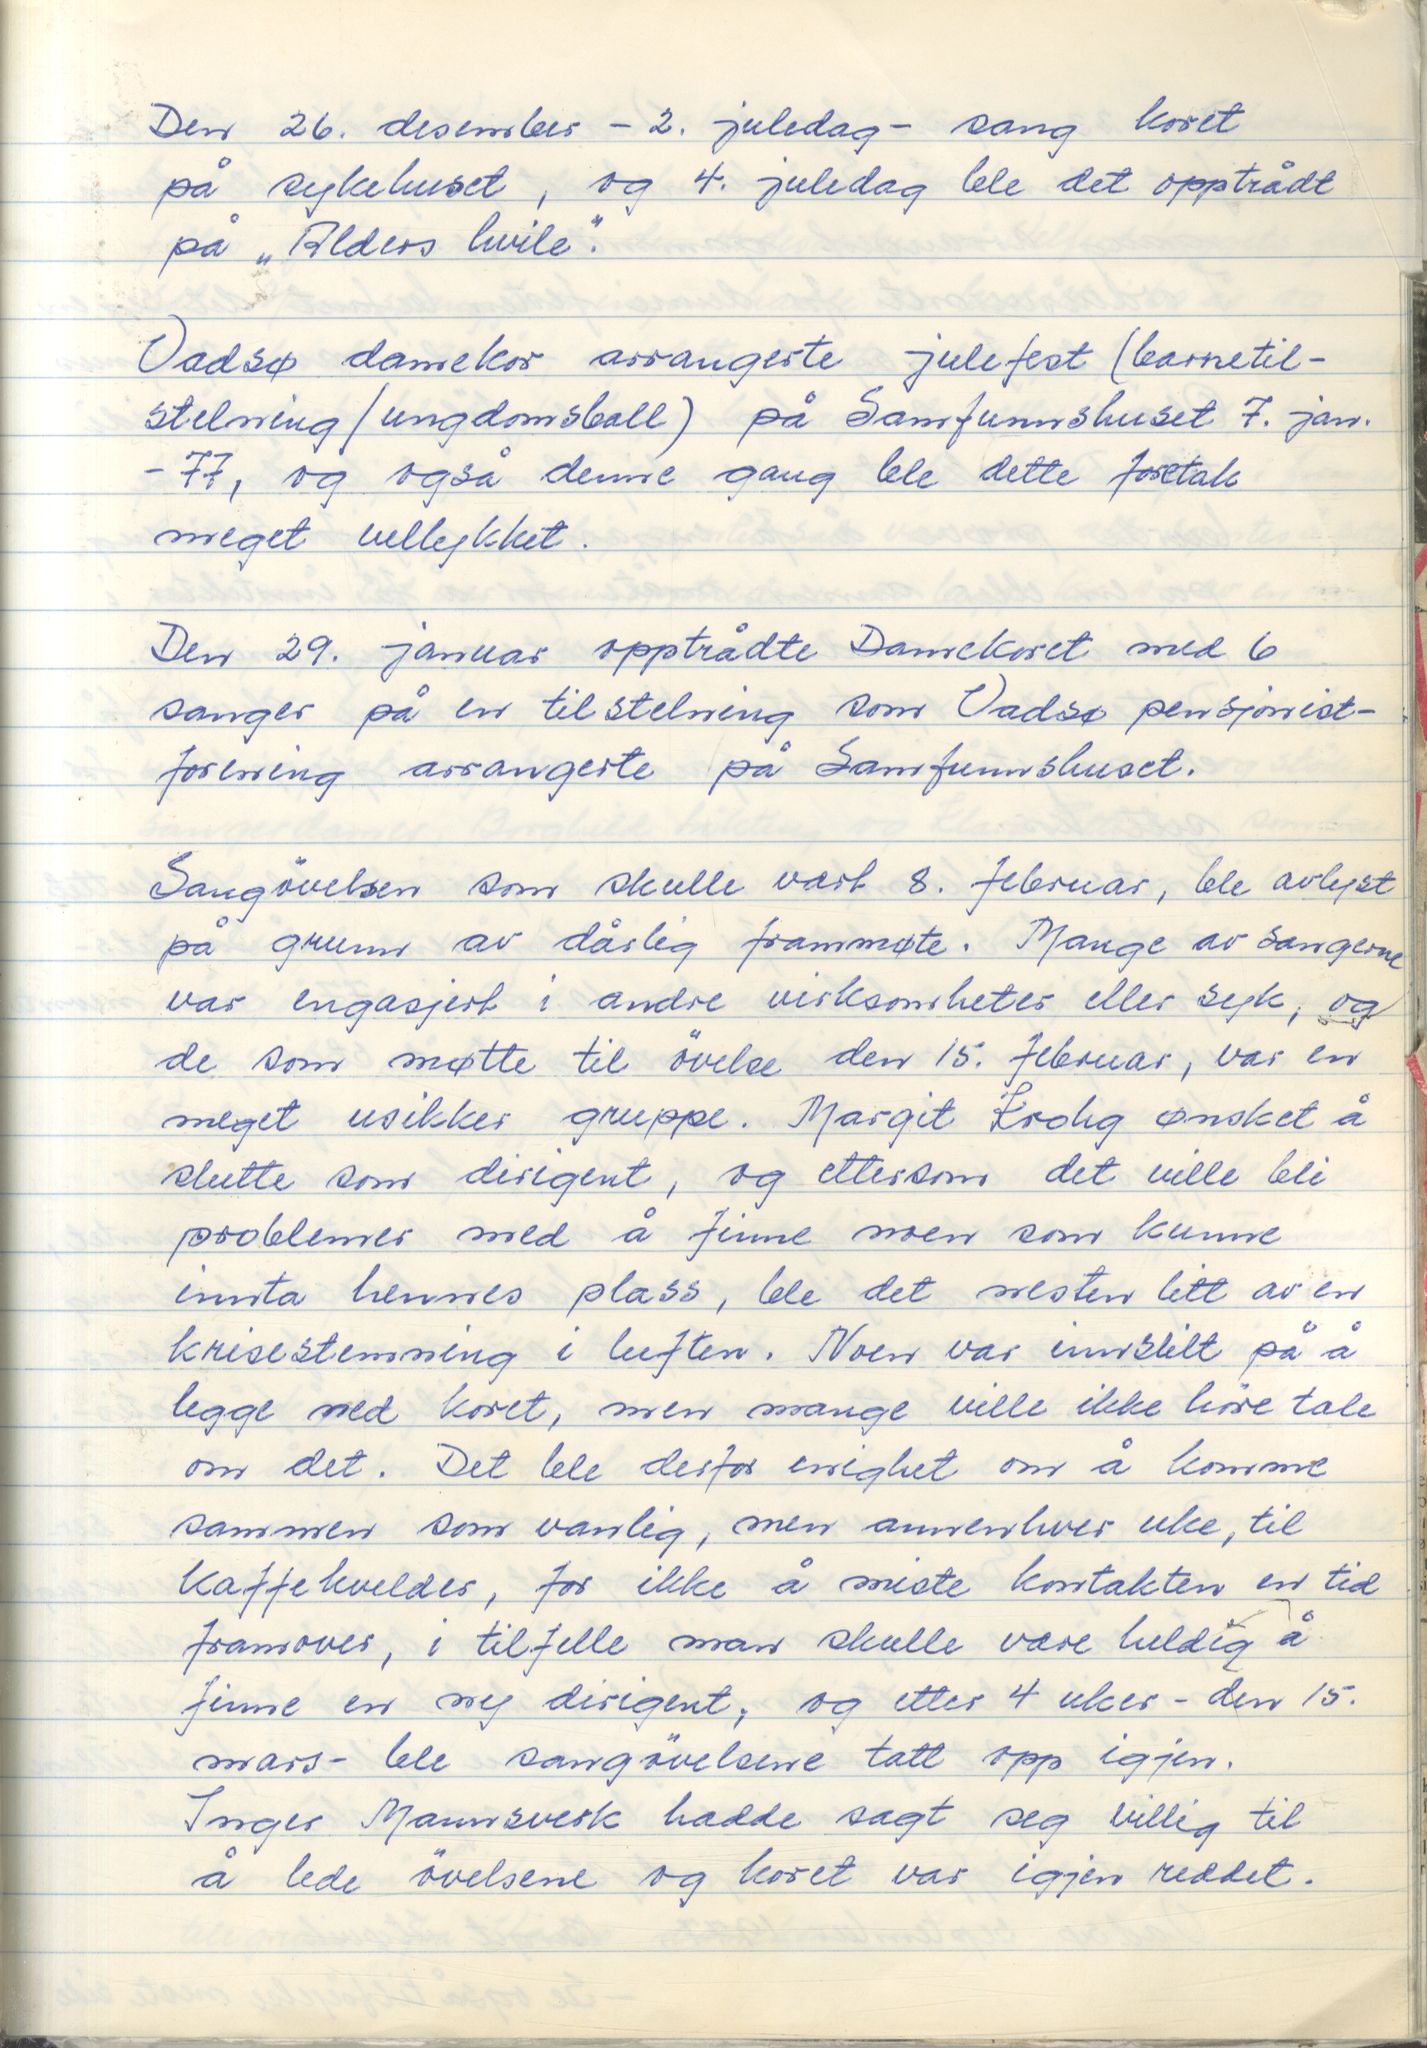 Den 26. desember - 2. juledag - sang koret
på sykehuset, og 4. juledag ble det opptrådt
på „Alders hvile".
Vadsø damekor arrangerte julefest (barnetil-
stelning/ungdomsball) på Samfunnshuset 7. jan.
- 77, og også denne gang ble dette foretak
meget vellykket.
Den 29. januar opptrådte Damekoret med 6
sanger på en tilstelning som Vadsø pensjonist-
forening arrangerte på Samfunnshuset.
Sangövelsen som skulle vært 8. februar, ble avlyst
på grunn av dårlig frammøte. Mange av sangerne
var engasjert i andre virksomheter eller syk, og
de som møtte til övelse den 15. februar, var en
meget usikker gruppe. Margit Krohg ønsket å
slutte som dirigent, og ettersom det ville bli
problemer med å finne noen som kunne
innta hennes plass, ble det nesten litt av en
krisestemning i luften. Noen var innstilt på å
legge ned koret, men mange ville ikke höre tale
om det. Det ble derfor enighet om å komme
sammen som vanlig, men annenhver uke, til
kaffekvelder, for ikke å miste kontakten en tid
framover, i tilfelle man skulle være heldig å
finne en ny dirigent, og etter 4 uker - den 15.
mars - ble sangövelsene tatt opp igjen.
Inger Mannsverk hadde sagt seg villig til
å lede övelsene og koret var igjen reddet.